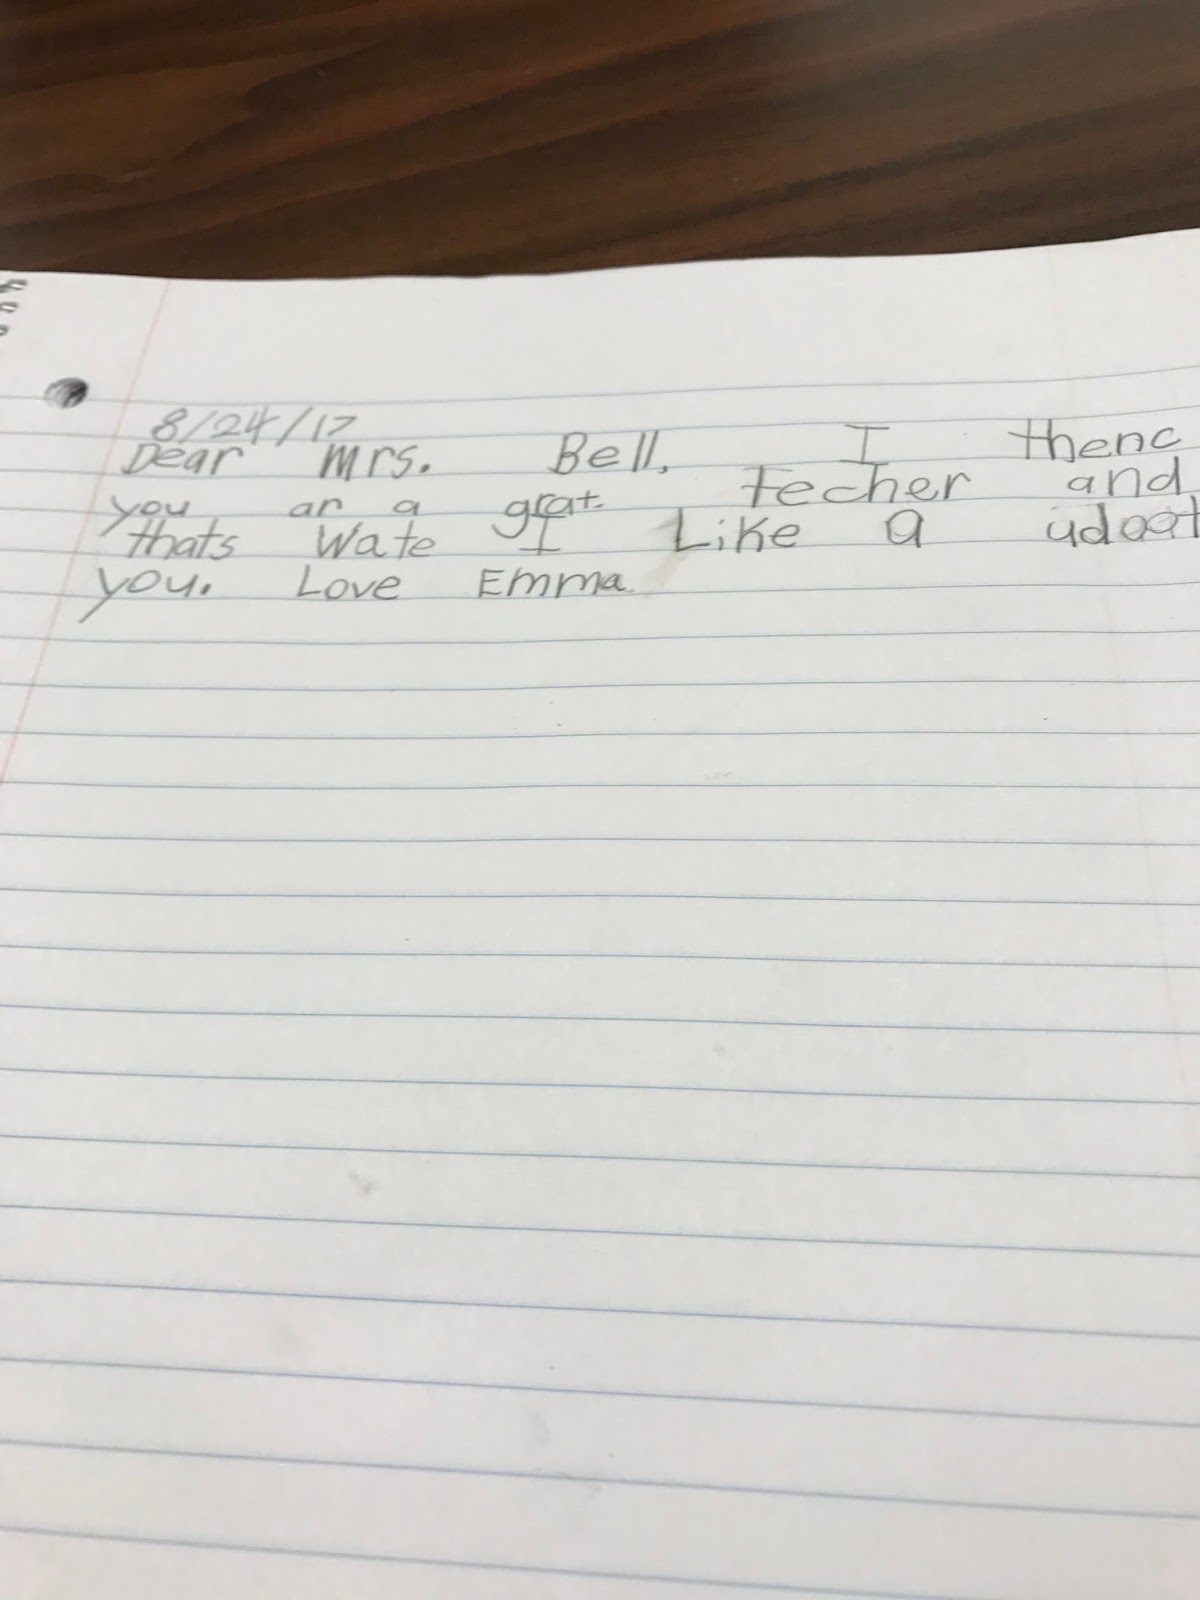 8/24/17
Dear Mrs. Bell, I thenc
you ar a grat techer and
thats Wate I Like a udoat
you. Love Emma